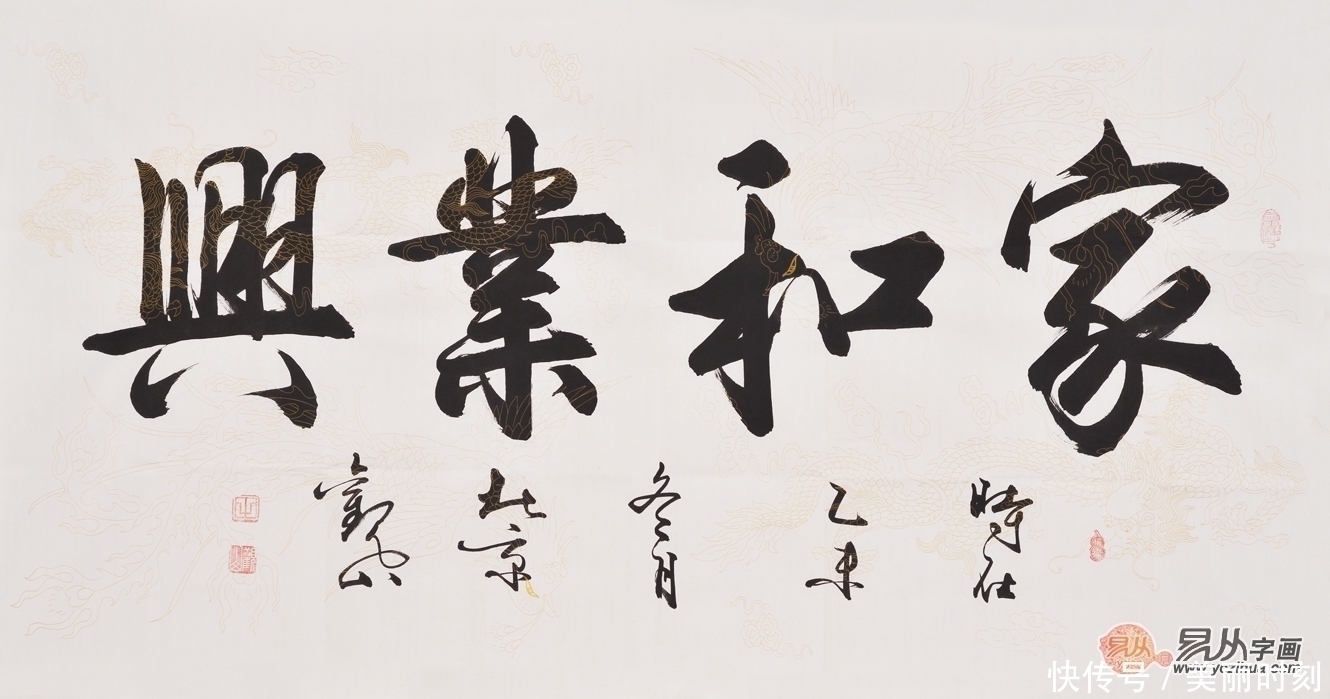 家和業興
時在 乙未 冬月 北京 觀山
易从字画
www.yczihua.com
快传号 / 美丽时刻